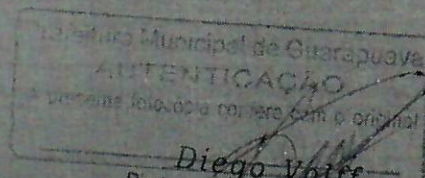 Prefeitura Municipal de Guarapuava
AUTENTICAÇÃO
A presente fotocópia confere com o original
Diego